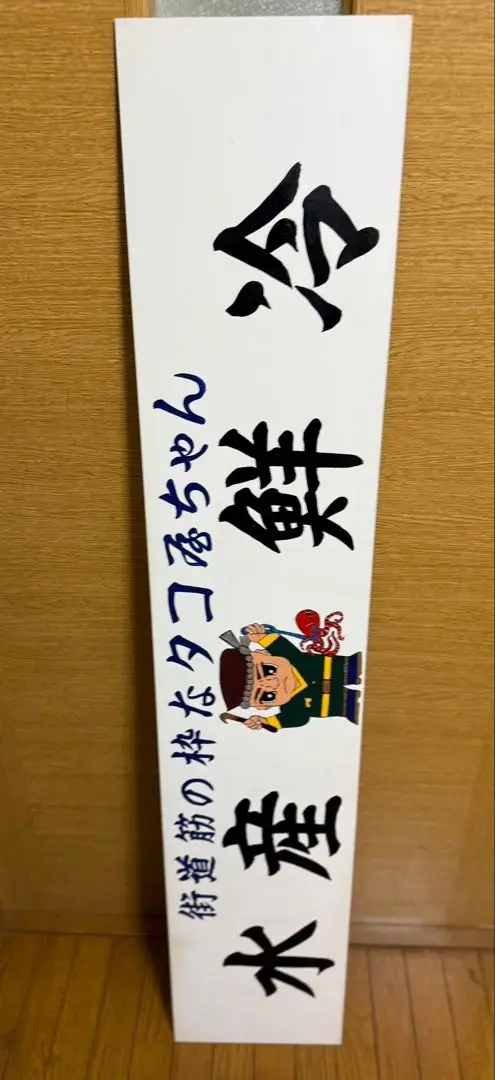 街道筋の枠なタコ屋ちゃん
水産鮮冷